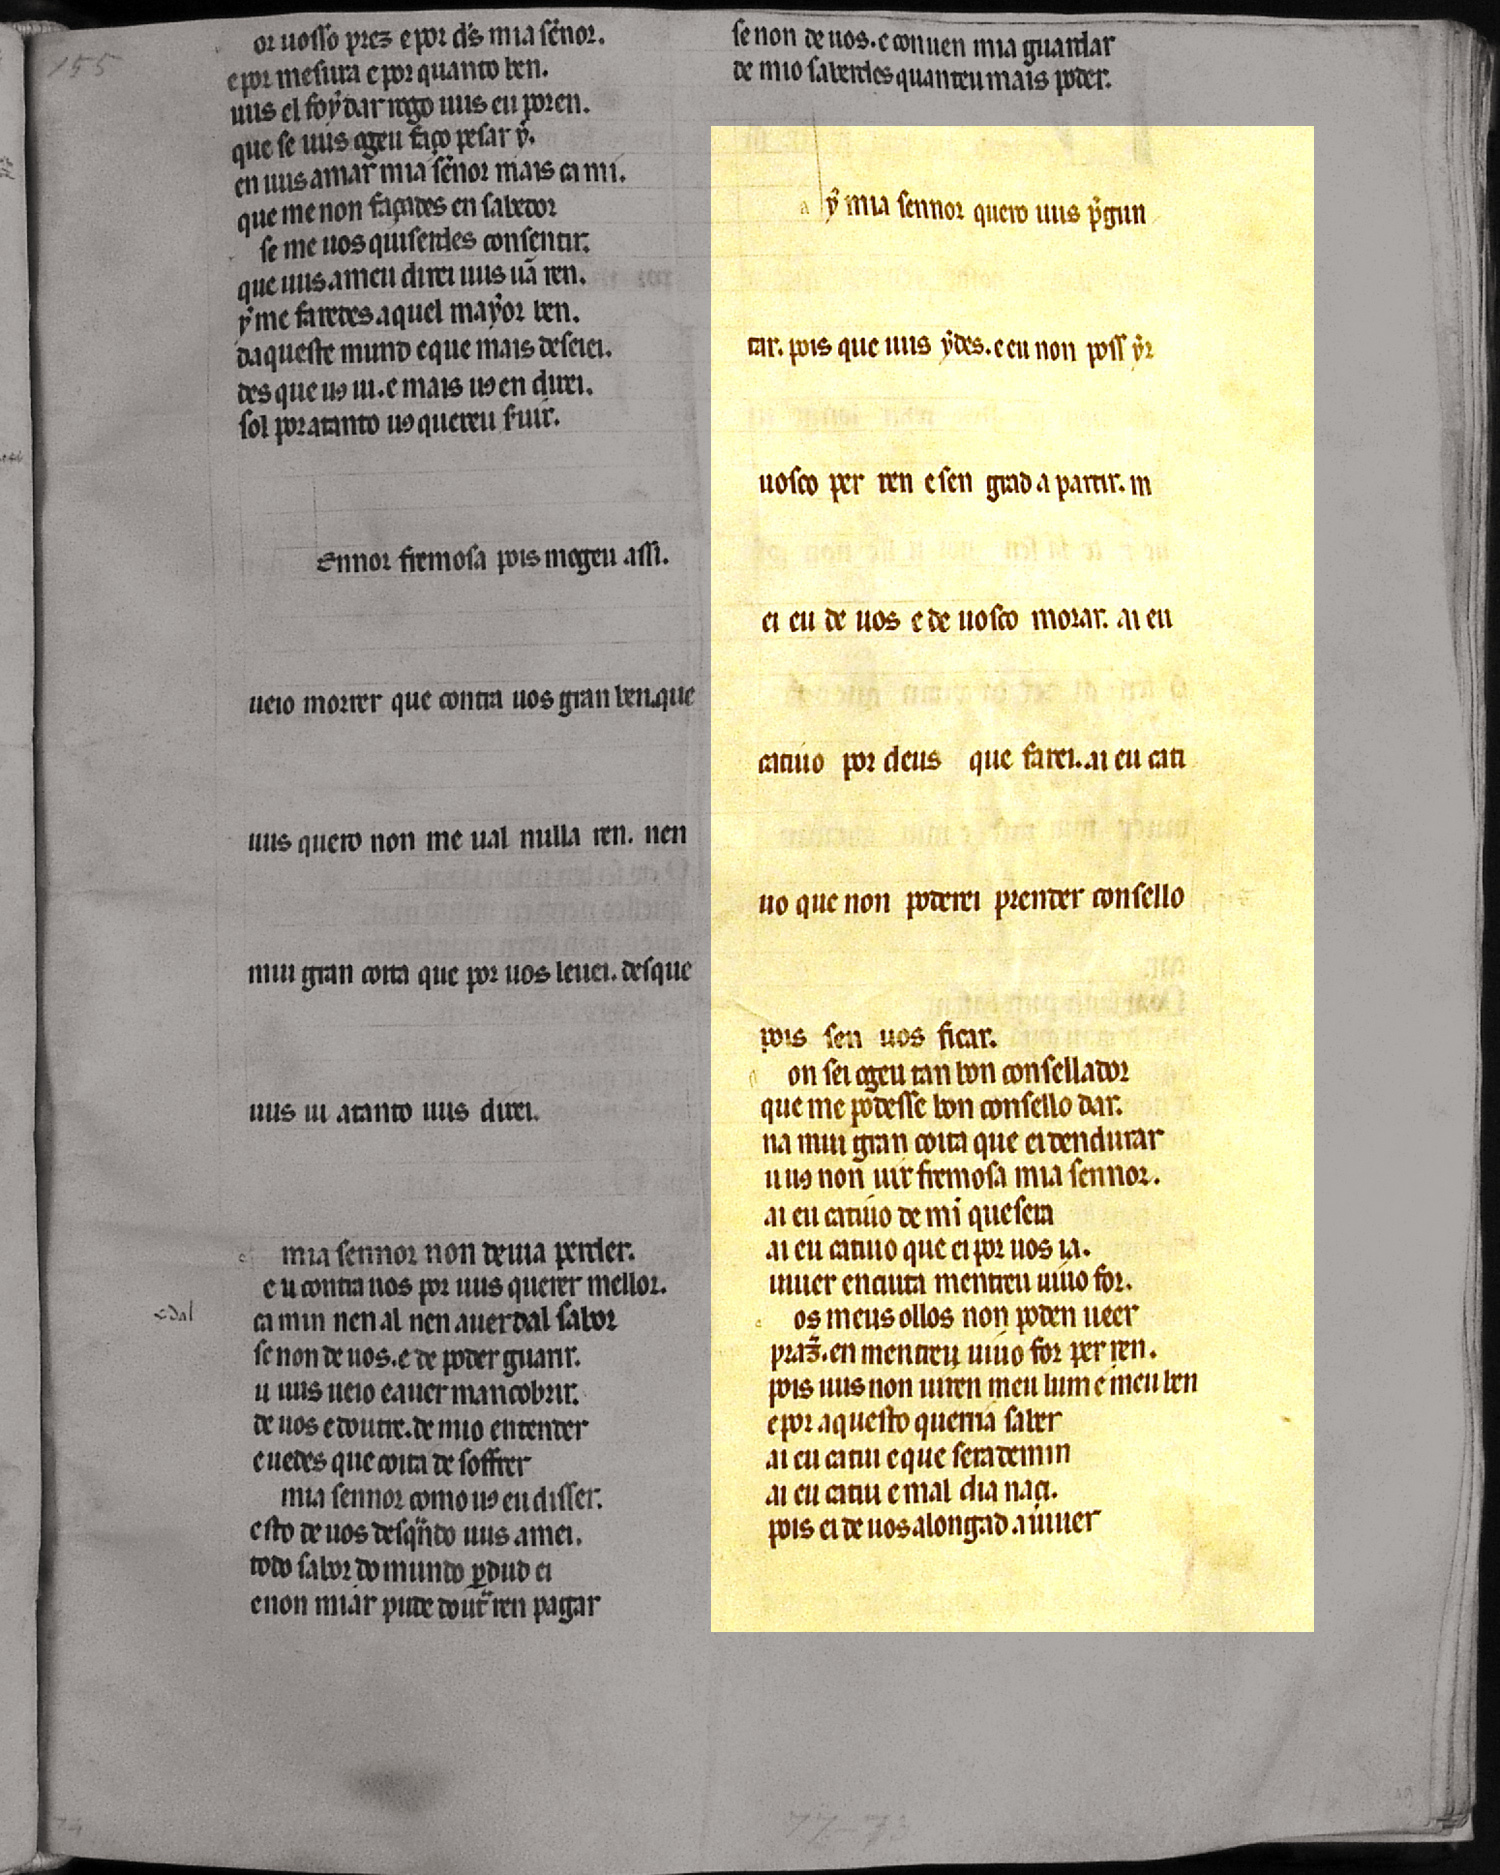 155
or uosso prez e por d̃s mia sẽnor.
e por mesura e por quanto ben.
uus el foẏ dar rogo uus eu poren.
que se uus ogeu faço pesar ẏ.
en uus amar mia sẽnor mais ca mi.
que me non façades en sabedor
se me uos quiserdes consentir.
que uus ameu direi uus uã ren.
ẏ me faredes aquel maẏor ben.
daqueste mund e que mais deseiei.
des que uꝯ ui. e mais uꝯ en direi.
sol por atanto uꝯ quereu s̃uir.
Ennor fremosa pois mogeu assi.
ueio morrer que contra uos gran ben. que
uus quero non me ual nulla ren. nen
mui gran coita que por uos leuei. des que
uus ui atanto uus direi.
mia sennor non deuia perder.
eu contra uos por uus querer mellor.
ca min nen al nen auer dal sabor
se non de uos. e de poder guarir.
u uus ueio e auer man cobrir.
de uos e doutre. de mio entender
e uedes que coita de soffrer
e dal
mia sennor como uꝯ eu disser.
esto de uos des q̃ndo uus amei.
todo sabor do mundo ꝑdud ei
e non miár pude dout̃ ren pagar
se non de uos. e conuen mia guardar
de mio saberdes quanteu mais poder.
a ẏ mia sennor quero uus p̃gun
tar. pois que uus ẏdes. e eu non poss ẏr
uosco per ren e sen grad a partir. m
ei eu de uos e de uosco morar. ai eu
catiuo por deus que farei. ai eu cati
uo que non poderei prender consello
pois sen uos ficar.
on sei ogeu tan bon consellador
que me podesse bon consello dar.
na mui gran coita que ei dendurar
u uꝯ non uir fremosa mia sennor.
ai eu catiuo de mi que sera
ai eu catiuo que ei por uos ia.
uiuer en cuita mentreu uiuo for.
os meus ollos non poden ueer
praz̃. en mentreu uiuo for per ren.
pois uus non uiren meu lum e meu ben
e por aquesto querria saber
ai eu catiu e que sera de min
ai eu catiu e mal dia naci.
pois ei de uos alongad a uiuer